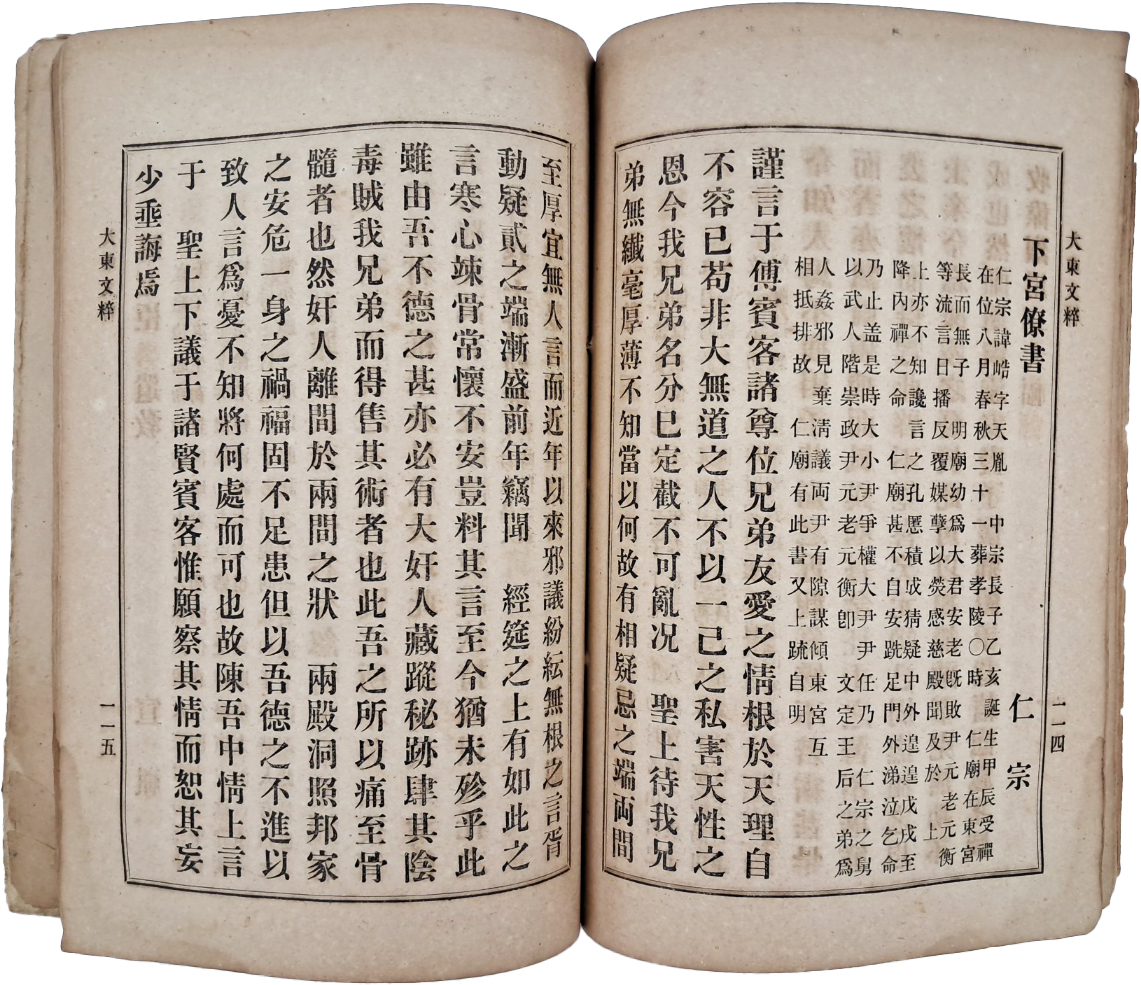 大東文粹 一一四
下宮僚書 仁宗
仁宗諱皓字天胤 中宗長子乙亥誕生甲辰受禪
在位八月春秋三十一葬孝陵〇時 仁廟在東宮
長而無子 明廟幼爲大君安老旣敗尹元老元衡
等流言日播反覆媒孽以熒感慈殿聞及於 上
上亦不知讒言之孔慝積成猜疑中外遑遑戊戌至
降內禪之命 仁廟甚不自安跣足門外涕泣乞命
乃止盖是時大小尹爭權大尹尹任乃 仁宗之舅
以武人階崇政尹元老元衡卽 文定王后之弟爲
人姦邪見棄淸議両尹有隙謀傾東宮互
相抵排故 仁廟有此書又上䟽自明
謹言于傅賓客諸尊位兄弟友愛之情根於天理自
不容已苟非大無道之人不以一己之私害天性之
恩今我兄弟名分已定截不可亂况 聖上待我兄
弟無纖毫厚薄不知當以何故有相疑忌之端両間
至厚宜無人言而近年以來邪議紛紜無根之言胥
動疑貳之端漸盛前年竊聞 經筵之上有如此之
言寒心竦骨常懷不安豈料其言至今猶未殄乎此
雖由吾不德之甚亦必有大奸人藏蹤秘跡肆其陰
毒賊我兄弟而得售其術者也此吾之所以痛至骨
髓者也然奸人離間於兩間之狀 兩殿洞照邦家
之安危一身之禍福固不足患但以吾德之不進以
致人言爲憂不知將何處而可也故陳吾中情上言
于 聖上下議于諸賢賓客惟願察其情而恕其妄
少垂誨焉
大東文粹 一一五